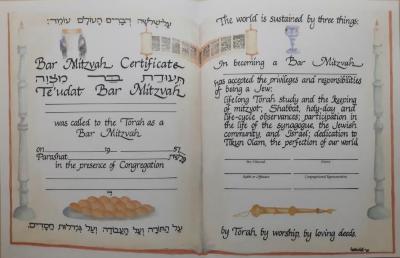 על שלשה דברים העולם עומד:
Bar Mitzvah Certificate
תעודת בר מצוה
Te'udat Bar Mitzvah
was called to the Torah as a
Bar Mitzvah
on 19 57
Parashat פרשת
in the presence of Congregation
ד
על התורה ועל העבודה ועל גמילות חסדים.
The world is sustained by three things:
In becoming a Bar Mitzvah
has accepted the privileges and responsibilities
of being a Jew:
lifelong Torah study and the keeping
of mitzvot; Shabbat, holy-day and
life-cycle observances; participation in
the life of the synagogue, the Jewish
community, and Israel; dedication to
Tikkun Olam, the perfection of our world
Bar Mitzvah Parent
Rabbi or Officiant Congregational Representative
by Torah, by worship, by loving deeds.